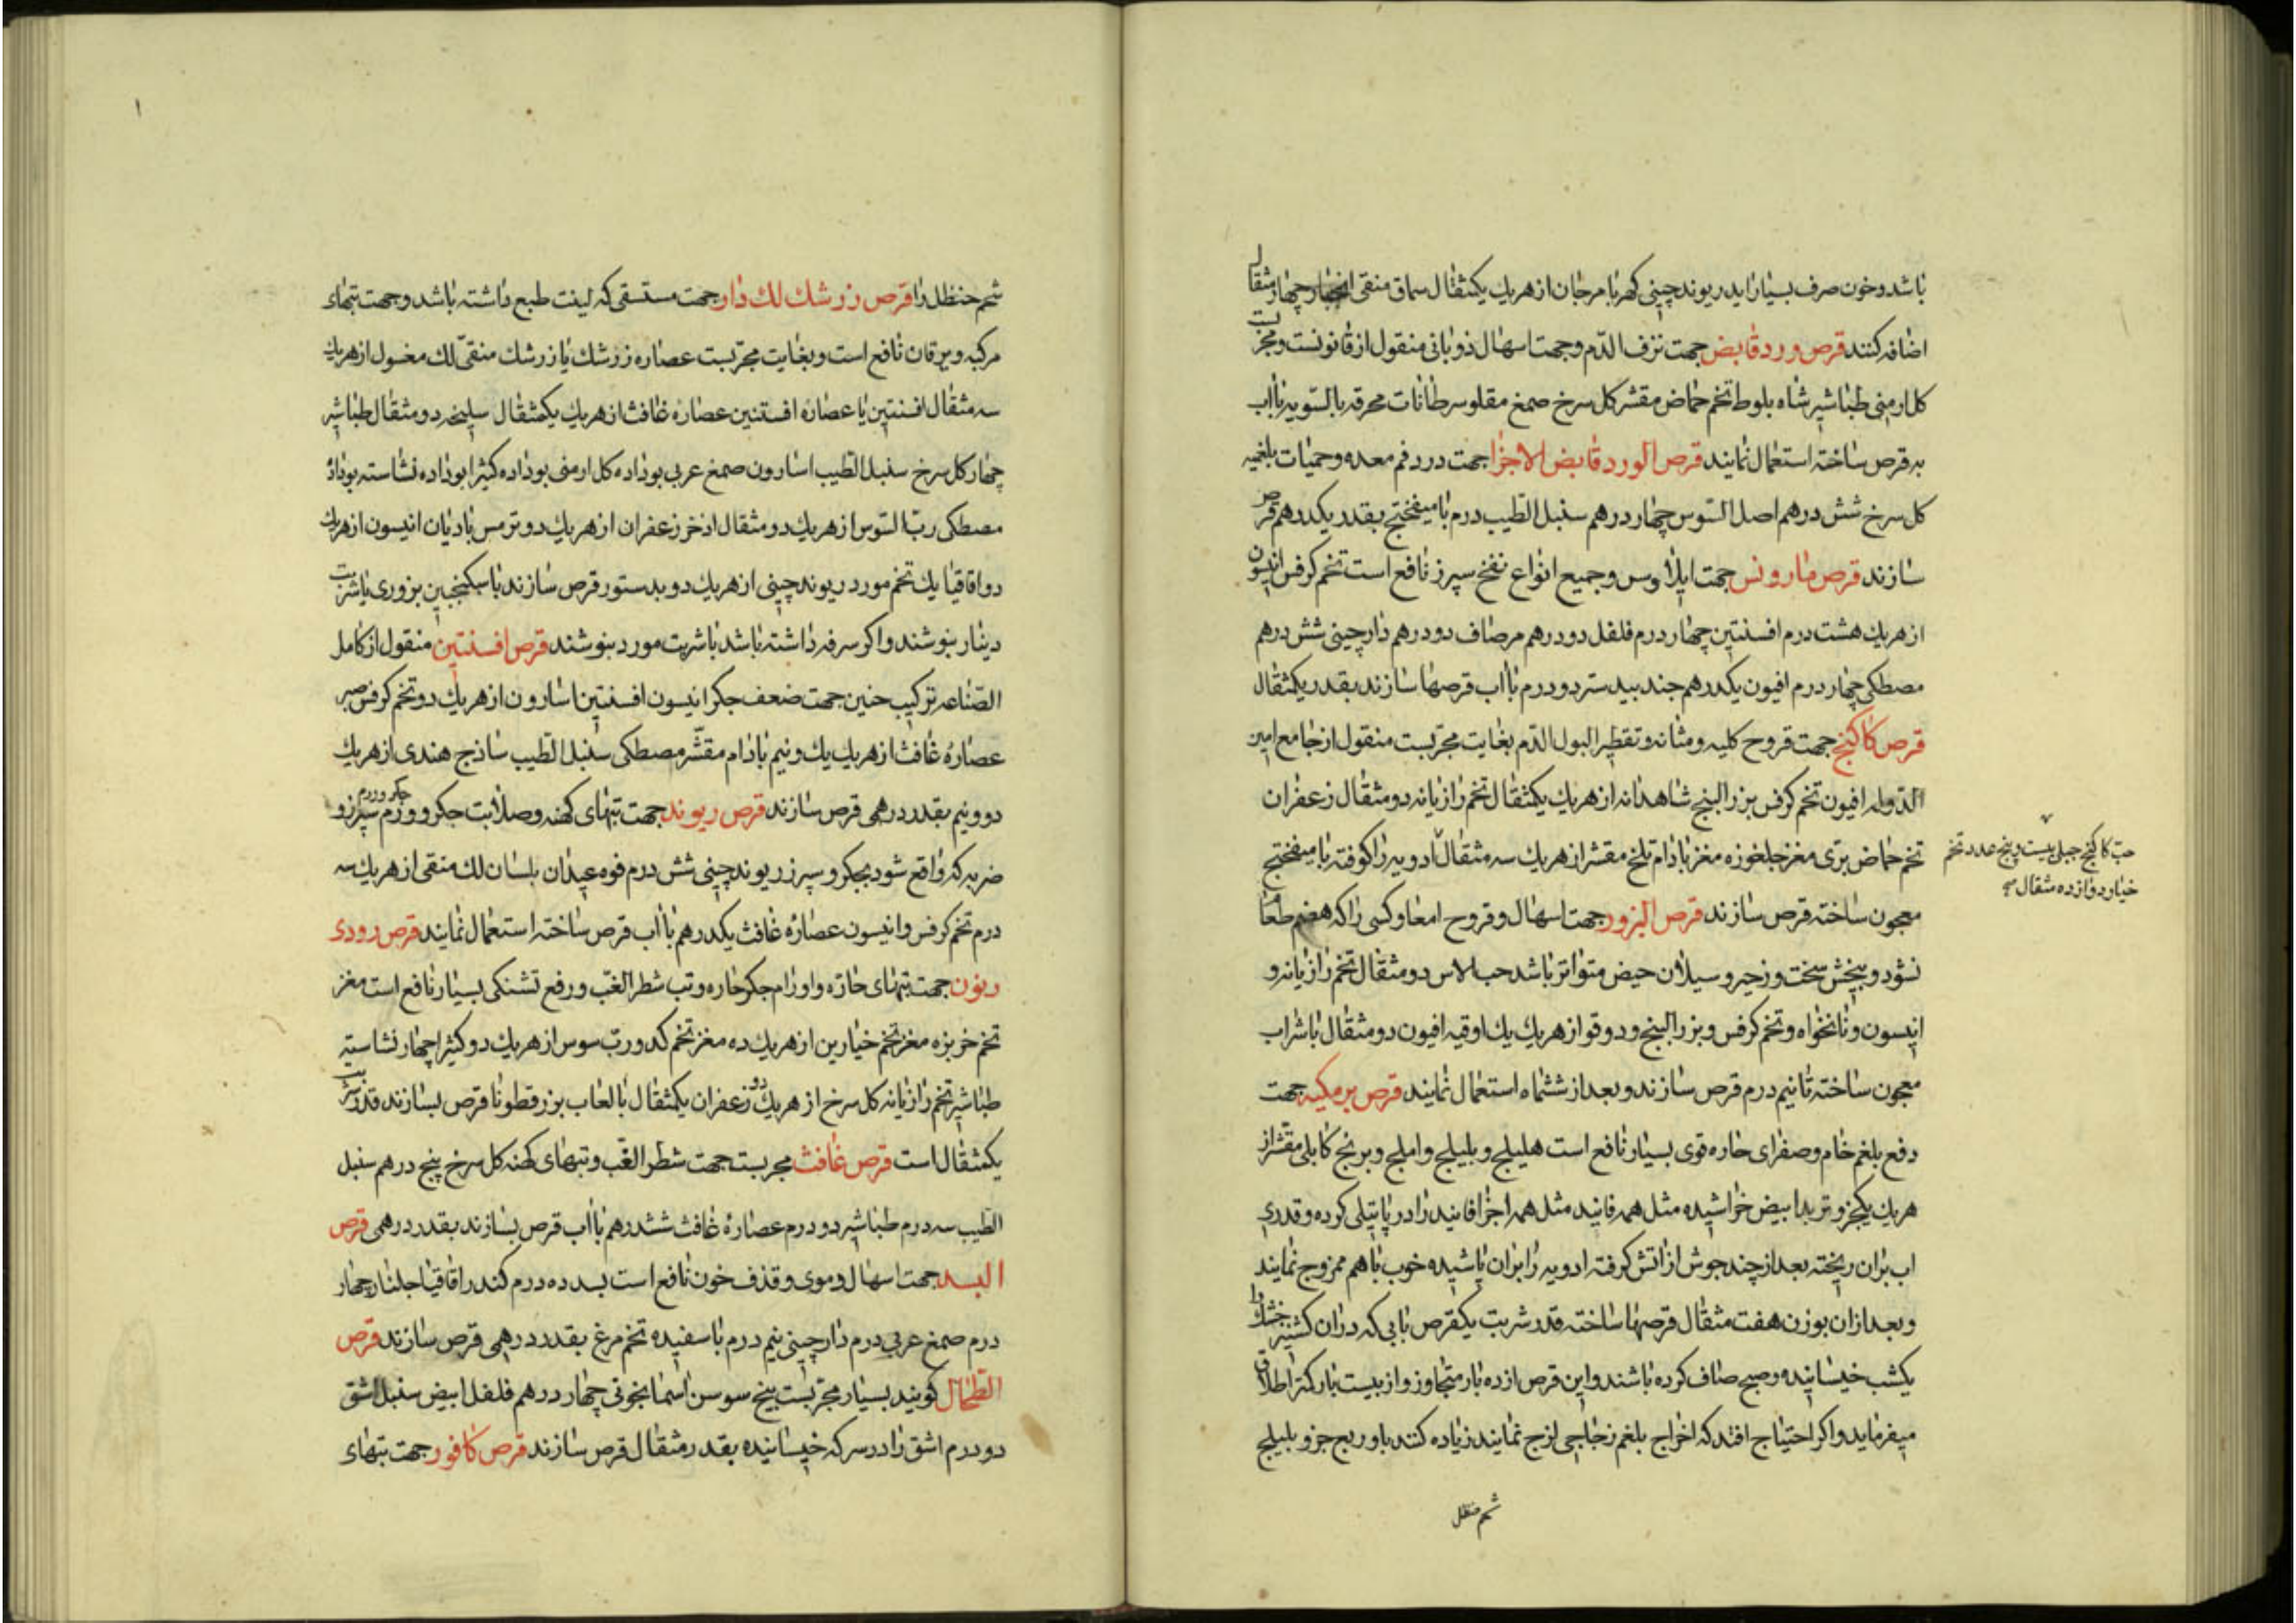 باشد و خون صرف بسیار آید ریوند چینی کهربا مرجان از هریك یکمثقال سماق منقی انجبار چهار مثقال
اضافه کنند قرص ورد قابض جهت نزف الدّم و جهت اسهال ذوبانی منقول از قانونست و مجربست
کل ارمنی طباشیر شاه بلوط تخم حماض مقشر کل سرخ صمغ مقلو سرطانات محرقه بالسّویه باآب
به قرص ساخته استعمال نمایند قرص الورد قابض الاجزا جهت درد فم معده و حمیات بلغمیه
کل سرخ شش درهم اصل السّوس چهار درهم سنبل الطّیب درم با میفختج بقدر یکدرهم قرص
سازند قرص مارونس جهت ایلاوس و جمیع انواع نفخ سپرز نافع است تخم کرفس انیسون
از هریك هشت درم افسنتین چهار درم فلفل دو درهم مرصاف دو درهم دارچینی شش درهم
مصطکی چهار درم افیون یکدرهم جند بیدستر دو درم باآب قرصها سازند بقدر یکمثقال
قرص کاکنج جهت قروح کلیه و مثانه و تقطیر البول الدّم بغایت مجرّبست منقول از جامع امین
الدّوله افیون تخم کرفس بزر البنج شاهدانه از هریك یکمثقال تخم رازیانه دو مثقال زعفران
تخم حماض برّی مغز جلغوزه مغز بادام تلخ مقشر از هریك سه مثقال ادویه را کوفته با میفختج
حب کاکنج جبلی بیست و پنج عدد تخم
خیار دوازده مثقال صح
معجون ساخته قرص سازند قرص البزور جهت اسهال و قروح امعا و کسی را که هضم طعام
نشود و پیچش سخت و زحیر و سیلان حیض متواتر باشد حب الاس دو مثقال تخم رازیانه و
انیسون و نانخواه و تخم کرفس و بزر البنج و دوقو از هریك یك اوقیه افیون دو مثقال باشراب
معجون ساخته تا نیم درم قرص سازند و بعد از ششماه استعمال نمایند قرص برمکیه جهت
دفع بلغم خام و صفرای حاره قوی بسیار نافع است هلیلج و بلیلج و املج و برنج کابلی مقشر از
هریك یکجزو تربد ابیض خراشیده مثل همه فانید مثل همه اجزا فانید را در پاتیلی کرده و قدری
اب بران ریخته بعد از چند جوش از اتش کرفته ادویه را بران پاشیده خوب باهم ممزوج نمایند
و بعد ازان بوزن هفت مثقال قرصها ساخته قدر شربت یکقرص بابی که دران کشنیز خشك را
یکشب خیسانیده و صبح صاف کرده باشند و این قرص از ده بار متجاوز و از بیست بار کمتر اطلاق
میفرماید و اکر احتیاج افتد که اخراج بلغم زجاجی لزج نمایند زیاده کنند باو ربع جزو بلیلج
شحم حنظل
شحم حنظل را قرص زرشك لك دار جهت مستسقی که لینت طبع داشته باشد و جهت تبهای
مرکبه و یرقان نافع است و بغایت مجرّبست عصاره زرشك یا زرشك منقّی لك مغسول از هریك
سه مثقال افسنتین یا عصارهٔ افستنین عصارهٔ غافث از هریك یکمثقال سلیخه دو مثقال طباشیر
چهار کل سرخ سنبل الطّیب اسارون صمغ عربی بوداده کل ارمنی بوداده کثیرا بوداده نشاسته بوداده
مصطکی ربّ السّوس از هریك دو مثقال اذخر زعفران از هریك دو ترمس بادیان انیسون از هریك
دو اقاقیا یك تخم مورد ریوند چینی از هریك دو بدستور قرص سازند باسکنجبین بزوری یاشربت
دینار بنوشند و اکر سرفه داشته باشد باشربت مورد بنوشند قرص افسنتین منقول از کامل
الصّناعه ترکیب حنین جهت ضعف جکر انیسون افسنتین اسارون از هریك دو تخم کرفس صبر
عصارهٔ غافث از هریك یك و نیم بادام مقشّر مصطکی سنبل الطّیب ساذج هندی از هریك
دو و نیم بقدر درهمی قرص سازند قرص ریوند جهت تبهای کهنه و صلابت جکر و ورم سپرز و
ضربه که واقع شود بجکر و سپرز ریوند چینی شش درم فوه عیدان بلسان لك منقی از هریك سه
درم تخم کرفس و انیسون عصارهٔ غافث یکدرهم باآب قرص ساخته استعمال نمایند قرص رودی
ریون جهت تبهای حارّه و اورام جکر حاره و تب شطر الغب و رفع تشنکی بسیار نافع است مغز
تخم خربزه مغز تخم خیارین از هریك ده مغز تخم کدو ربّ سوس از هریك دو کثیرا چهار نشاسته
طباشیر تخم رازیانه کل سرخ از هریك دو زعفران یکمثقال بالعاب بزر قطونا قرص بسازند قدر شربت
یکمثقال است قرص غافث مجربست جهت شطر الغّب و تبهای کهنه کل سرخ پنج درهم سنبل
الطّیب سه درم طباشیر دو درم عصارهٔ غافث ششدرهم باآب قرص بسازند بقدر درهمی قرص
البسد جهت اسهال دموی و قذف خون نافع است بسد ده درم کندر اقاقیا جلنار چهار
درم صمغ عربی درم دارچینی نیم درم با سفیده تخم مرغ بقدر درهمی قرص سازند قرص
الطّحال کویند بسیار مجرّبست بیخ سوسن اسمانجونی چهار درهم فلفل ابیض سنبل اشق
دو درم اشق را در سرکه خیسانیده بقدر مثقال قرص سازند قرص کافور جهت تبهای